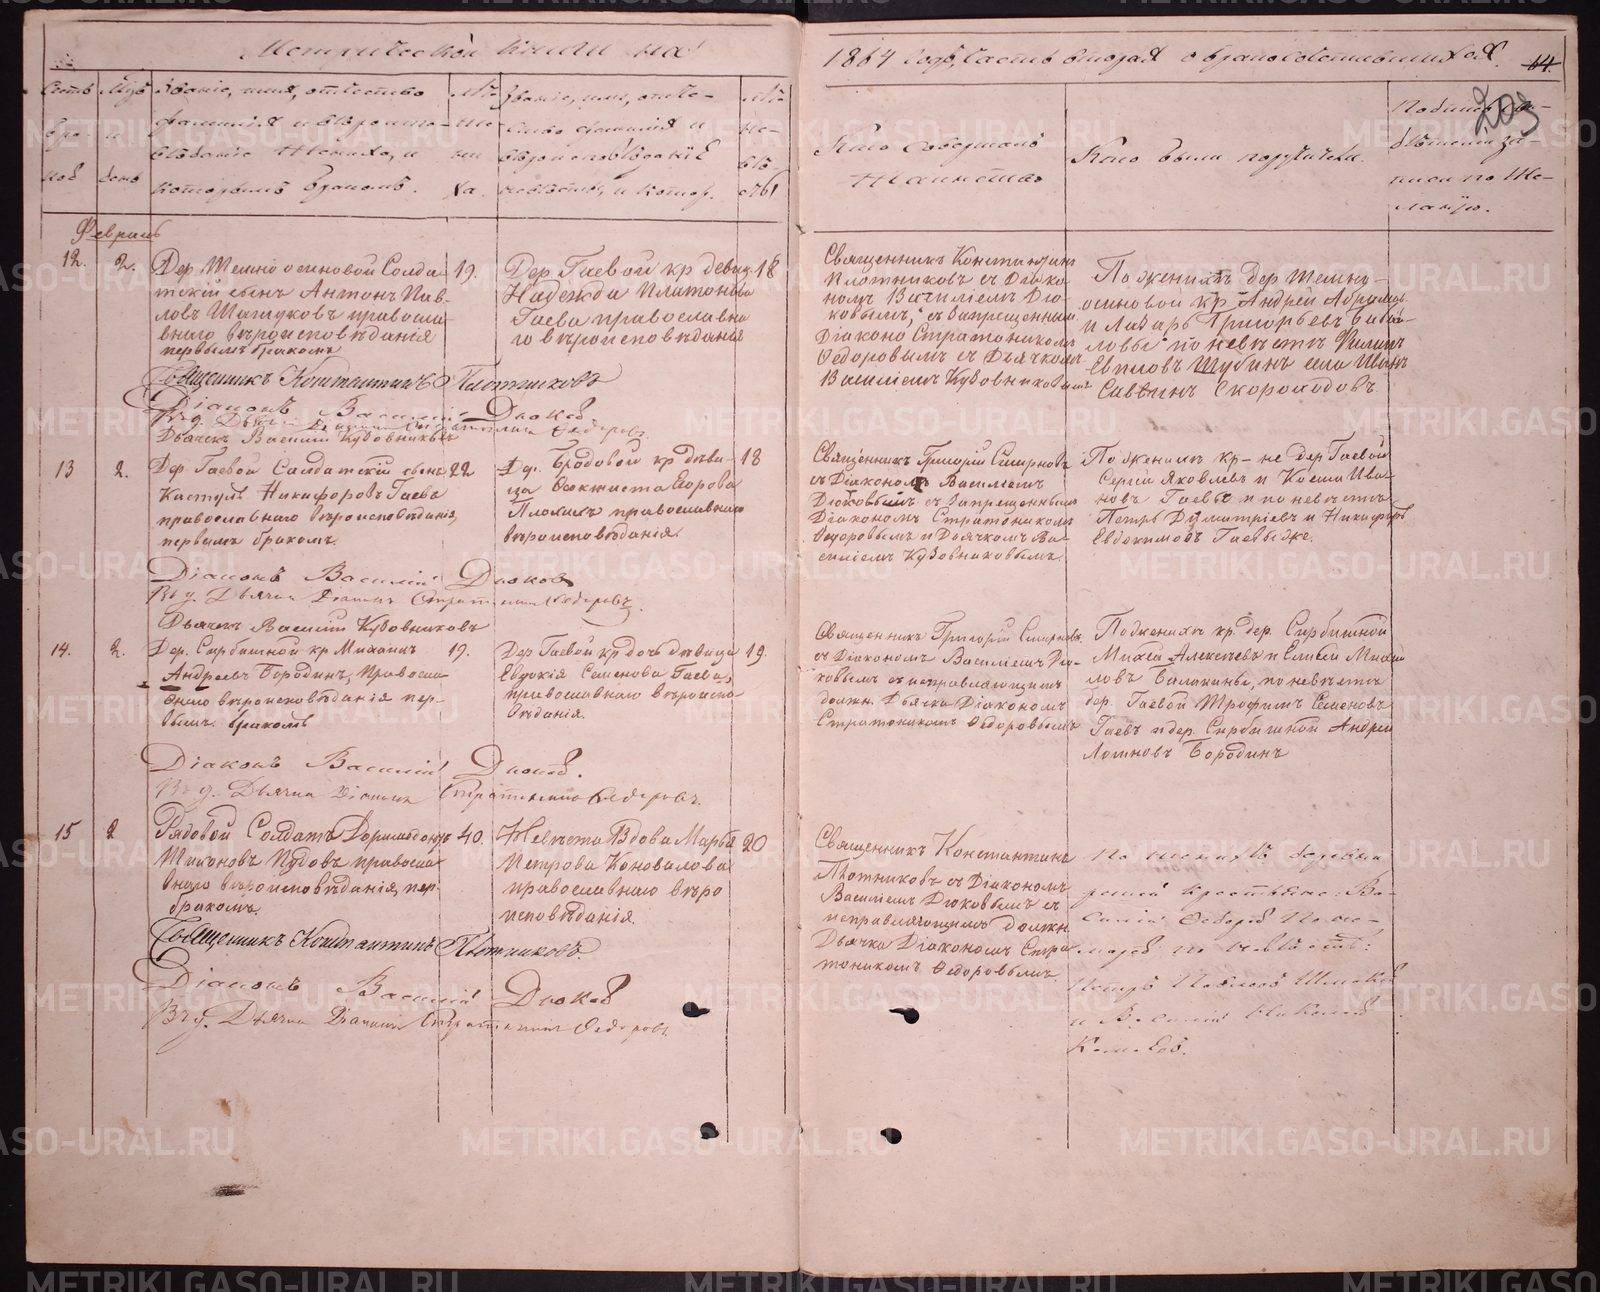 Метрической книги на
1864 годъ, часть вторая о бракосочетавшихся.
64.
203
Счетъ
бра-
ковъ
Мѣс
и
день
Званіе, имя, отчество
фамилія и вѣроиспо-
вѣданіе Жениха, и
которымъ бракомъ.
Лѣ-
та
же-
ни-
ха.
Званіе, имя, отче-
ство фамилія и
вѣроисповѣданіе
невѣсты, и котор.
Лѣ-
та
не-
вѣ-
сты
Кто совершалъ
Таинство
Кто были поручители.
Подпись сви-
дѣтелей за-
писи по Же-
ланію.
Февраль
12.
2.
Дер. Темно осиновой Солда-
тскій сынъ Антонъ Пав-
ловъ Шатуковъ правосла-
внаго вѣроисповѣданія
первымъ бракомъ
19.
Дер. Гаевой кр. девиц.
Надежда Платонова
Гаева православна
го вѣроисповѣданія
18
Священникъ Константинъ
Плотниковъ съ Діако-
номъ Василіемъ Дю-
ковымъ, съ запрещеннымъ
Діакономъ Стратоникомъ
Ѳедоровымъ съ Дьячкомъ
Василіемъ Кузовниковымъ
По женихѣ дер. Темно-
осиновой кр. Андрей Абрамовъ
и Лазарь Григорьевъ
по невѣстѣ Филипъ
Шубинъ села Иванъ
Савинъ Скороходовъ.
Священникъ Константинъ Плотниковъ
Діаконъ Василій Дюковъ.
Въ д. Дьячка Діаконъ Стратоникъ Ѳедоровъ.
Дьячекъ Василій Кузовниковъ
13
2.
Дер. Гаевой Салдатскій сынъ
Никифоровъ Гаевъ
православнаго вѣроисповѣданія,
первымъ бракомъ.
22
Де. Бродовой кр. дѣви-
ца Ѳеоктиста Егорова
Плохихъ православнаго
вѣроисповѣданія.
18
Священникъ Григорій Смирновъ
съ Діакономъ Василіемъ
Дюковымъ съ запрещеннымъ
Діакономъ Стратоникомъ
Ѳедоровымъ и Дьячкомъ Ва-
силіемъ Кузовниковымъ.
По женихѣ кр-не дер. Гаевой
Сергій Яковлевъ и Косма Ива-
новъ Гаевы и по невѣстѣ
Петръ Димитріевъ и Никифоръ
Евдокимовъ Гаевы же.
Діаконъ Василій Дюковъ
Въ д. Дьячка Діаконъ Стратоникъ Ѳедоровъ.
Дьячекъ Василій Кузовниковъ
14.
2.
Дер. Сарбишной кр. Михаилъ
Андреевъ Бородинъ, Правосла-
внаго вѣроисповѣданія пер-
вымъ. бракомъ
19.
Дер. Гаевой кр. дочь дѣвица
Евдокія Семенова Гаева,
православнаго вѣроиспо-
вѣданія.
19.
Священникъ Григорій Смирновъ
съ Діакономъ Василіемъ Дю-
ковымъ съ исправляющимъ
должн. Дьячка Діакономъ
Стратоникомъ Ѳедоровымъ
По женихѣ кр. дер. Сарбишной
Михей Алексѣевъ и Елисей Михай
ловъ Балакины, по невѣстѣ
дер. Гаевой Трофимъ Семеновъ
Гаевъ и дер. Сарбишной Андрей
Логиновъ Бородинъ
Діаконъ Василій Дюковъ.
Въ д. Дьячка Діаконъ Стратоникъ Ѳедоровъ.
15
2
Рядовой Солдатъ
Тихоновъ Пудовъ правосла-
внаго вѣроисповѣданія, пер-
бракомъ.
40.
Невѣста Вдова Марья
Петрова Коновалова
православнаго вѣро
исповѣданія.
20
Священникъ Константинъ
Плотниковъ съ Діакономъ
Василіемъ Дюковымъ съ
исправляющимъ должн.
Дьячка Діакономъ Стра
тоникомъ Ѳедоровымъ.
По женихѣ
крестьяне: Ва-
силій Ѳедоровъ
по невѣстѣ:
Петръ Павловъ
и Василій Николаевъ
Священникъ Константинъ Плотниковъ.
Діаконъ Василій Дюковъ
Въ д. Дьячка Діаконъ Стратоникъ Ѳедоровъ.
METRIKI.GASO-URAL.RU